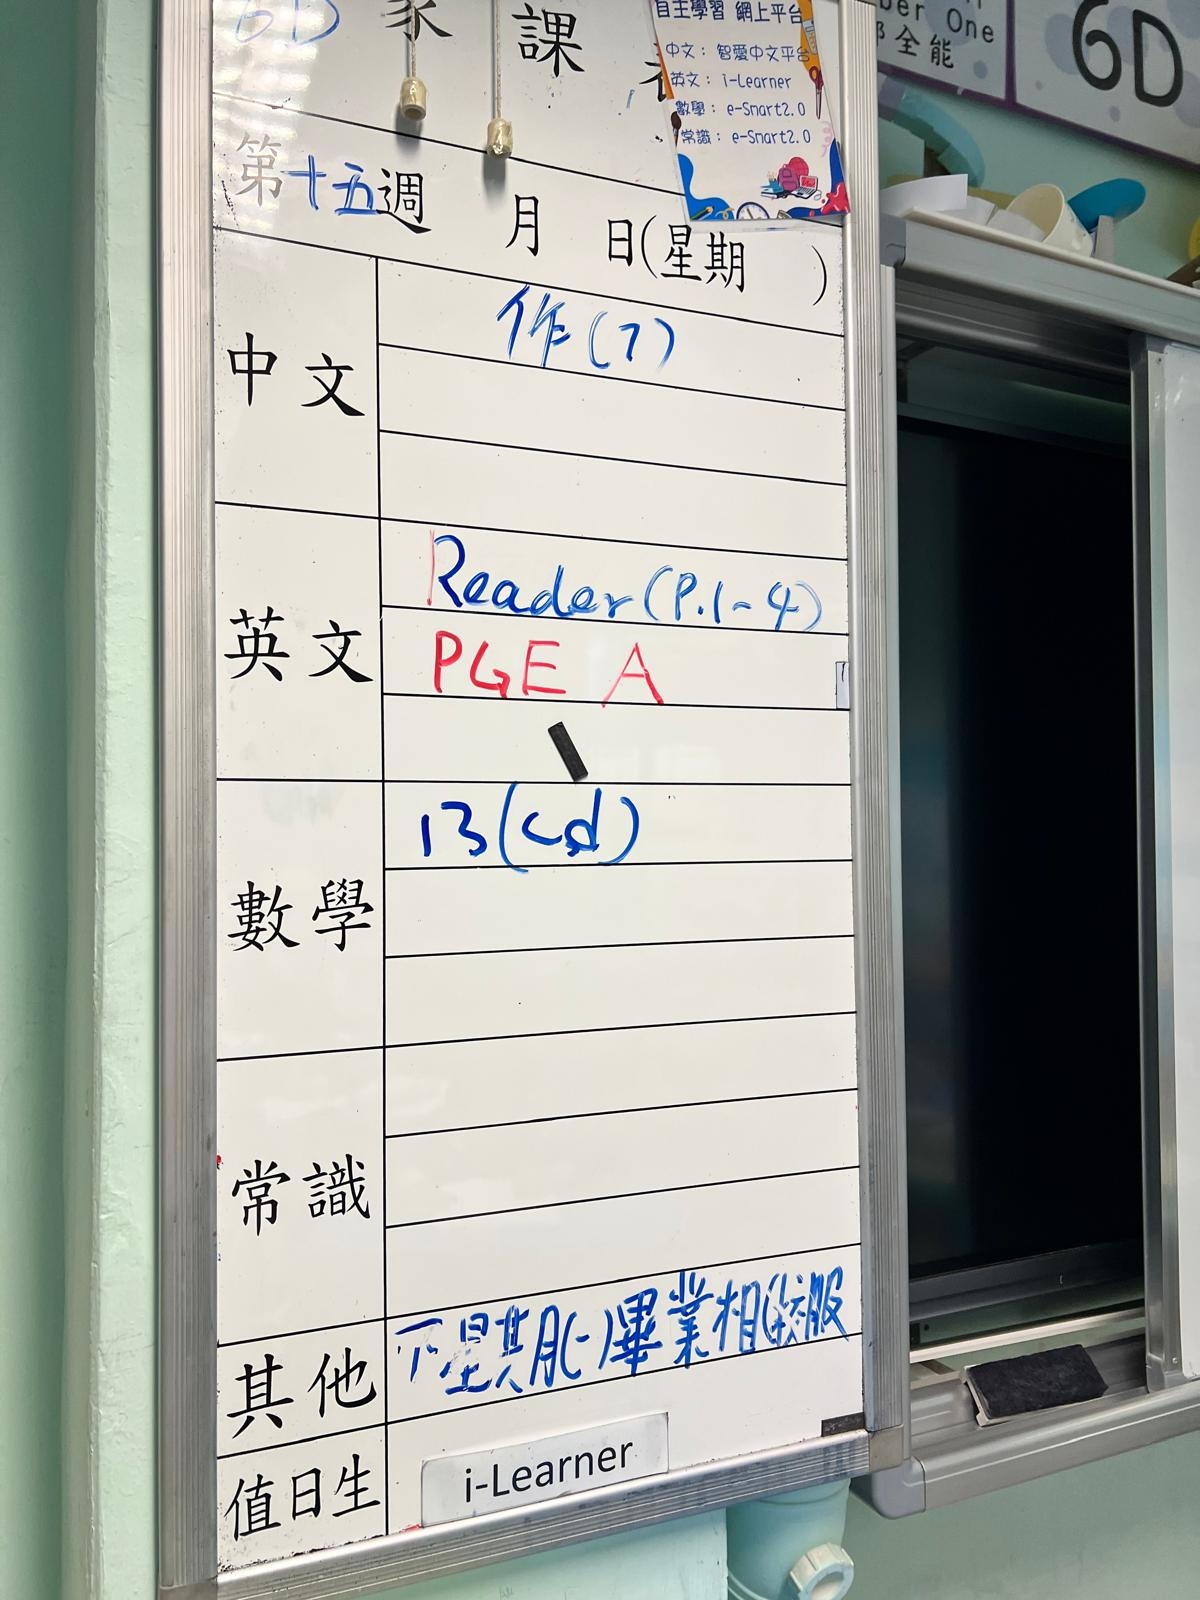 6D 家 課
自主學習 網上平台
中文： 智愛中文平台
英文： i-Learner
數學： e-Smart2.0
常識： e-Smart2.0
ber One
全能
6D
第十五週 月 日(星期 )
中文
作(7)
英文
Reader(P.1-4)
PGE A
數學
13(cd)
常識
其他
下星期(一)畢業相(校服
值日生
i-Learner